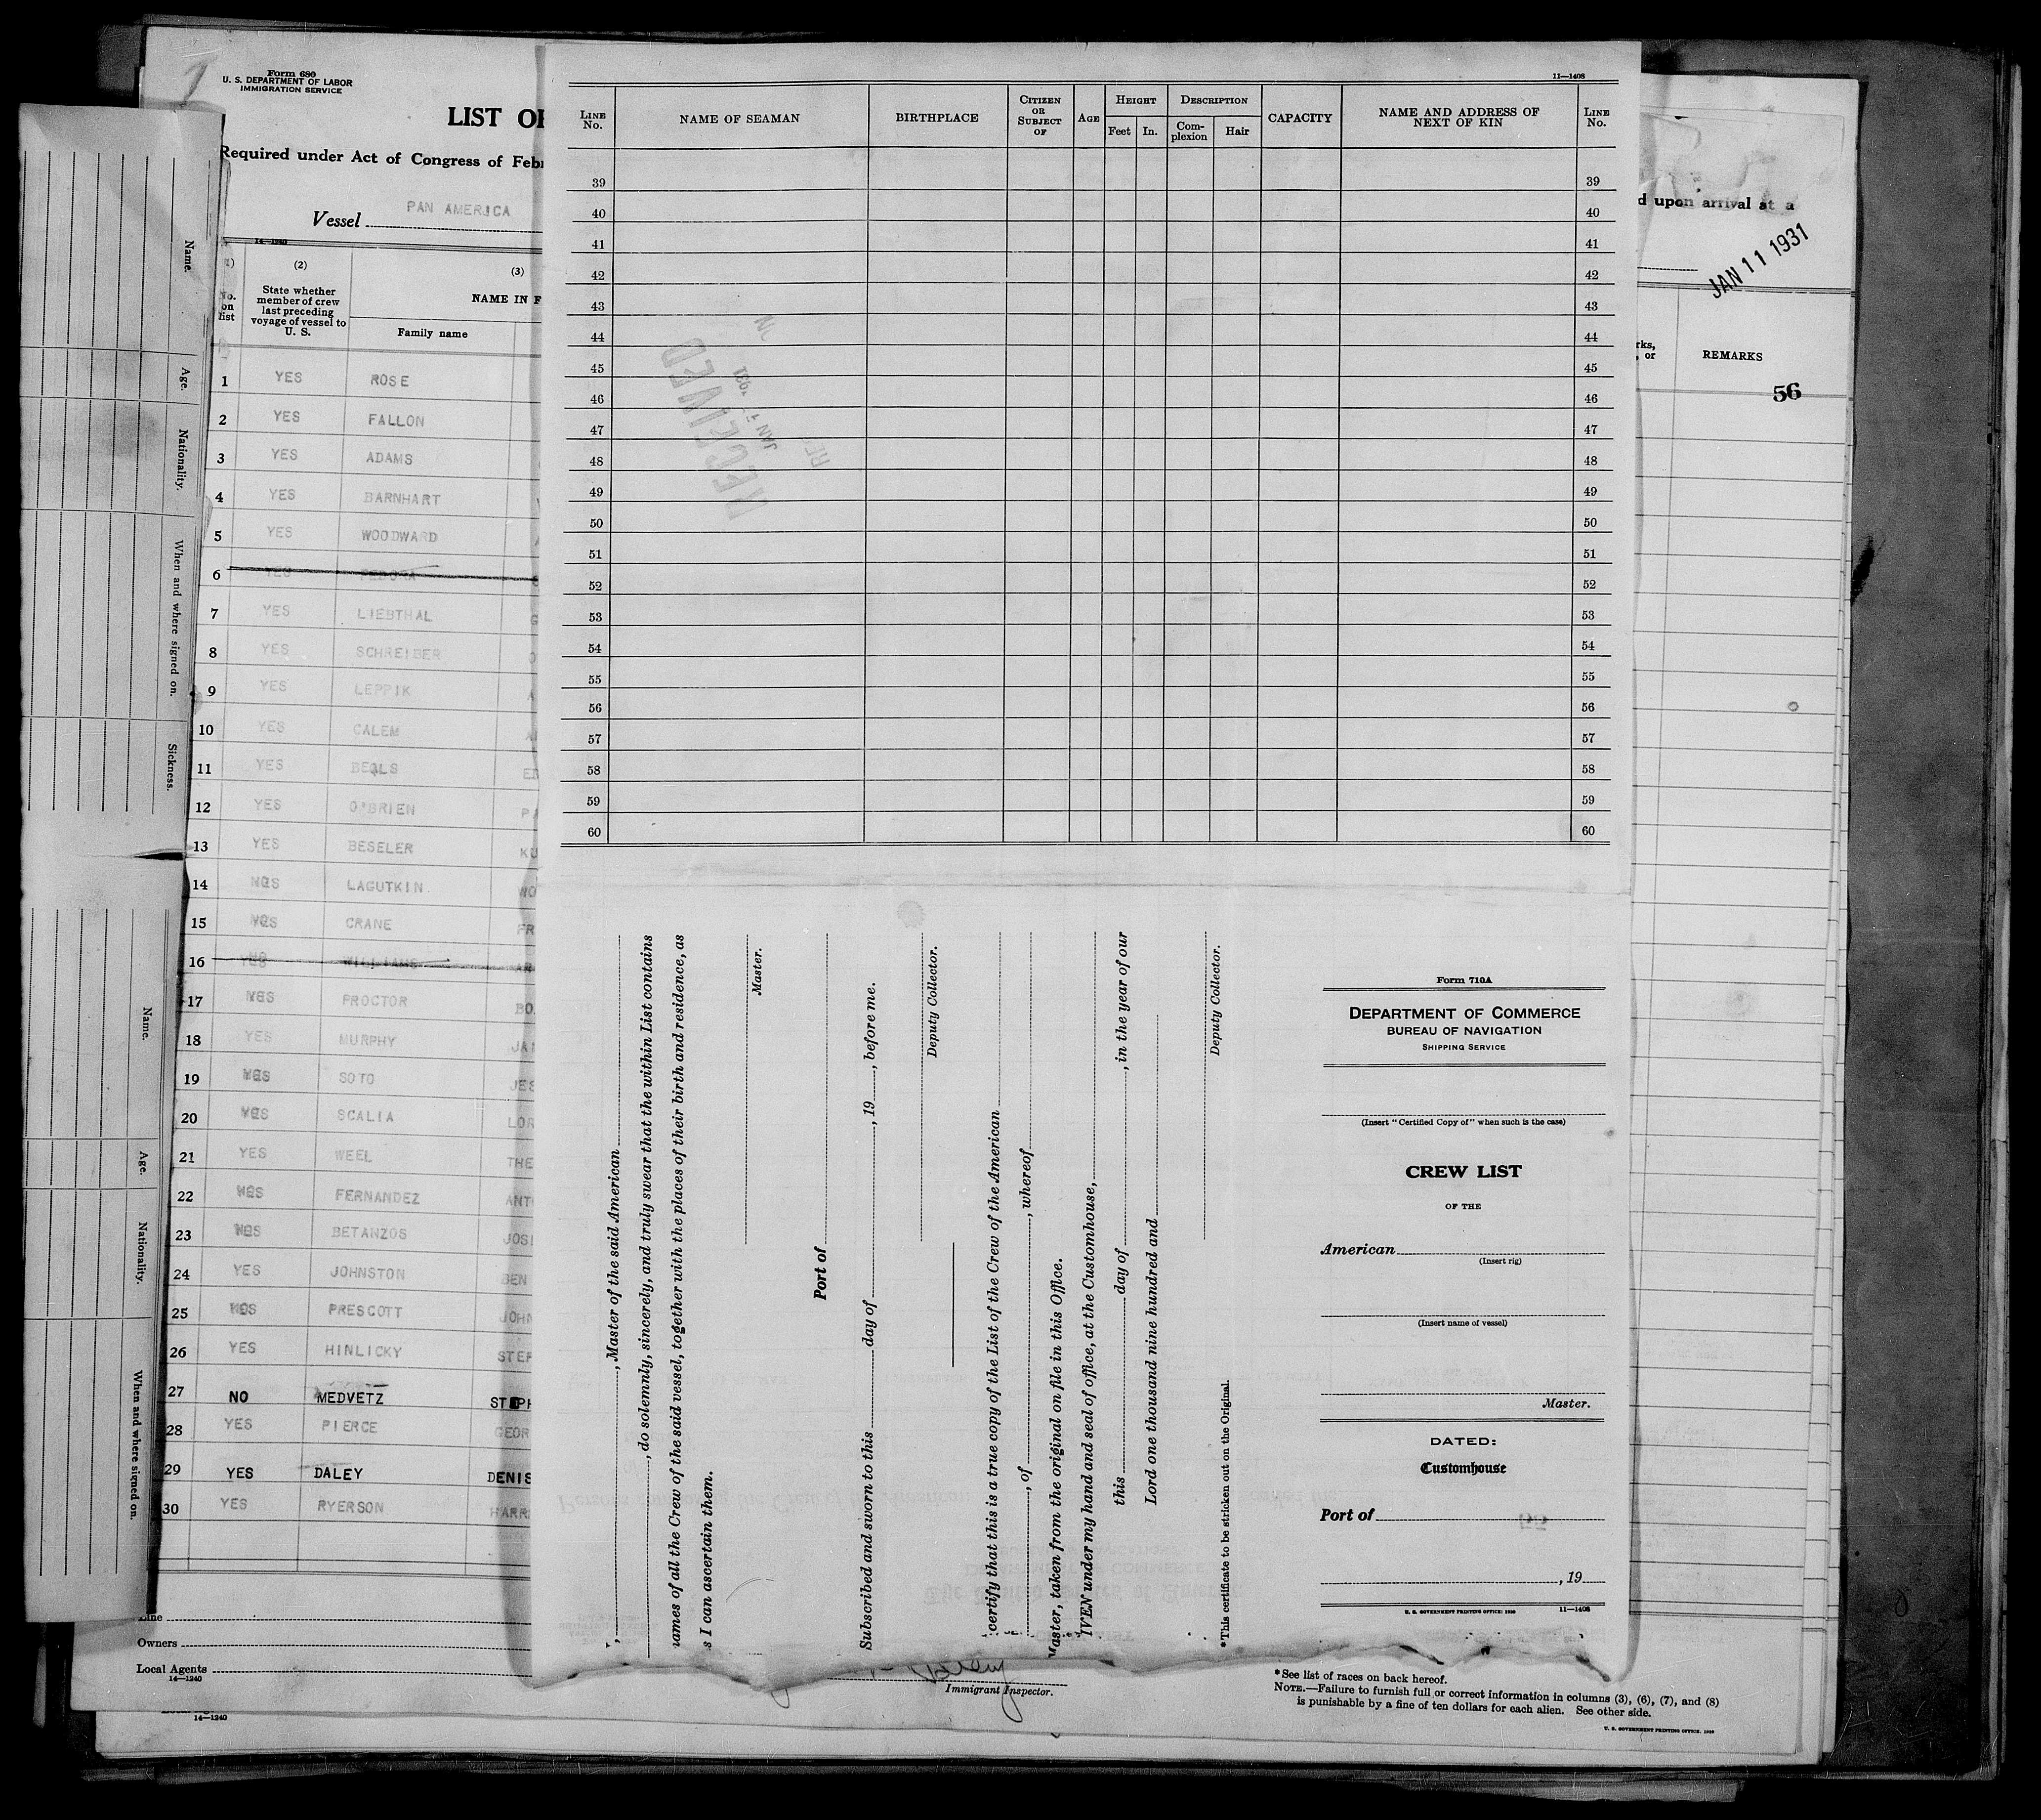 Form 680
U. S. DEPARTMENT OF LABOR
IMMIGRATION SERVICE
LIST OF
Required under Act of Congress of Febr
Vessel PAN AMERICA
14—1240
(1) (2) (3)
No. on list
State whether member of crew last preceding voyage of vessel to U. S.
NAME IN F
Family name
1 YES ROSE
2 YES FALLON
3 YES ADAMS
4 YES BARNHART
5 YES WOODWARD
6 YES
7 YES LIEBTHAL G
8 YES SCHREIBER O
9 YES LEPPIK A
10 YES CALEM
11 YES BEALS ED
12 YES O'BRIEN PA
13 YES BESELER KU
14 LAGUTKIN WO
15 CRANE FR
16 WILLIAMS
17 PROCTOR BO
18 YES MURPHY JA
19 SOTO JES
20 SCALIA LOR
21 YES WEEL THE
22 FERNANDEZ ANT
23 BETANZOS JOS
24 YES JOHNSTON BEN
25 PRESCOTT JOHN
26 YES HINLICKY STEP
27 NO MEDVETZ STEPH
28 YES PIERCE GEOR
29 YES DALEY DENIS
30 YES RYERSON HARR
Line
Owners
Local Agents
14—1240
14—1240
Name.
Age.
Nationality.
When and where signed on.
Sickness.
Name.
Age.
Nationality.
When and where signed on.
11—1408
LINE No.
NAME OF SEAMAN
BIRTHPLACE
CITIZEN OR SUBJECT OF
AGE
HEIGHT
Feet In.
DESCRIPTION
Complexion Hair
CAPACITY
NAME AND ADDRESS OF NEXT OF KIN
LINE No.
39 39
40 40
41 41
42 42
43 43
44 44
45 45
46 46
47 47
48 48
49 49
50 50
51 51
52 52
53 53
54 54
55 55
56 56
57 57
58 58
59 59
60 60
RECEIVED
JAN
, Master of the said American
, do solemnly, sincerely, and truly swear that the within List contains
names of all the Crew of the said vessel, together with the places of their birth and residence, as
s I can ascertain them.
Master.
Port of
Subscribed and sworn to this day of , 19 , before me.
Deputy Collector.
certify that this is a true copy of the List of the Crew of the American
, of , whereof
Master, taken from the original on file in this Office.
IVEN under my hand and seal of office, at the Customhouse,
this day of , in the year of our
Lord one thousand nine hundred and
Deputy Collector.
*This certificate to be stricken out on the Original.
Form 710A
DEPARTMENT OF COMMERCE
BUREAU OF NAVIGATION
SHIPPING SERVICE
(Insert "Certified Copy of" when such is the case)
CREW LIST
OF THE
American
(Insert rig)
(Insert name of vessel)
Master.
DATED:
Customhouse
Port of
, 19
U. S. GOVERNMENT PRINTING OFFICE: 1930 11—1408
d upon arrival at a
JAN 11 1931
rks, or
REMARKS
56
Immigrant Inspector.
*See list of races on back hereof.
NOTE.—Failure to furnish full or correct information in columns (3), (6), (7), and (8)
is punishable by a fine of ten dollars for each alien. See other side.